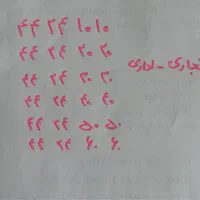 ۴۴ ۲۴ ۱۰ ۱۰
۴۴ ۲۴ ۲۰ ۲۰
تجاری - اداری
۴۴ ۲۴ ۳۰ ۳۰
۴۴ ۲۴ ۴۰ ۴۰
۴۴ ۲۴ ۵۰ ۵۰
۴۴ ۲۴ ۶۰ ۶۰